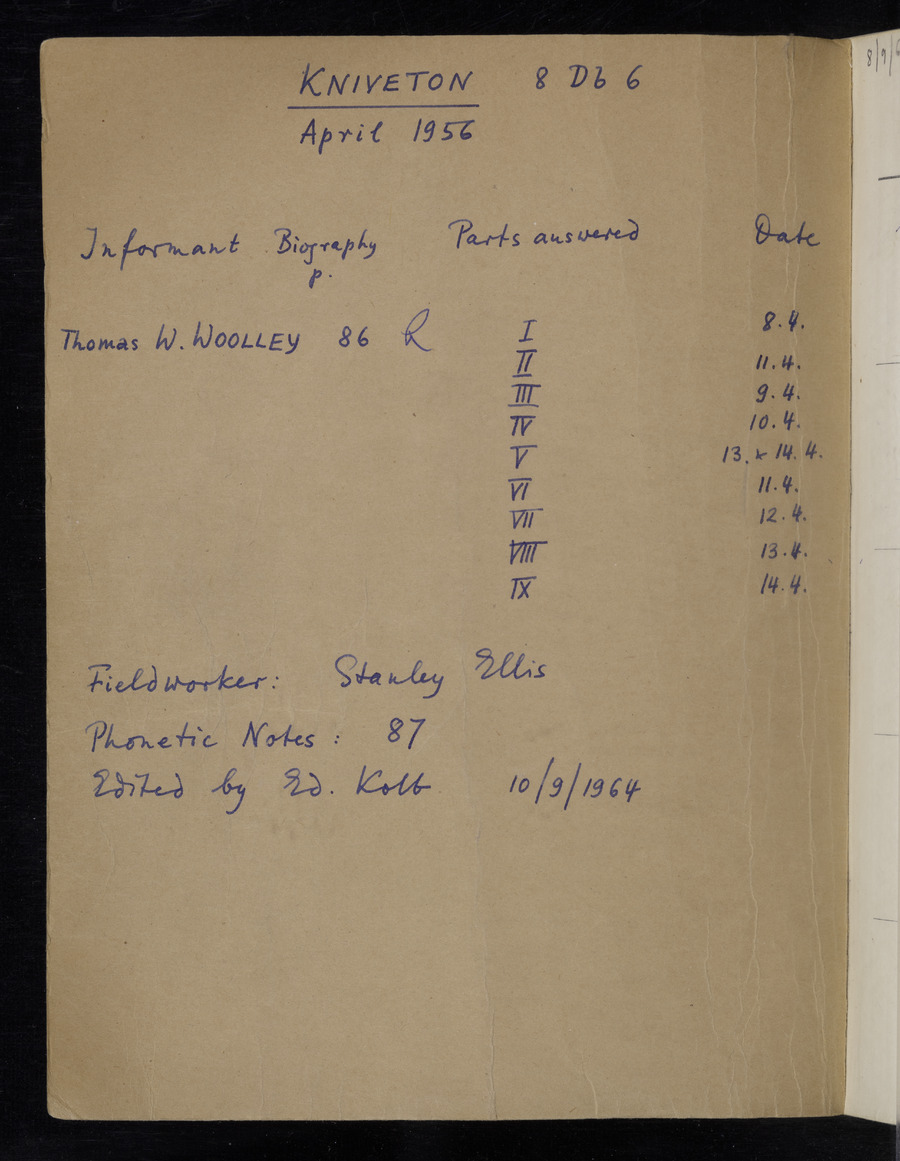 KNIVETON 8 Db 6
April 1956
Informant Biography Parts answered Date
p.
Thomas W. WOOLLEY 86 R I 8.4.
II 11.4.
III 9.4.
IV 10.4.
V 13. & 14.4.
VI 11.4.
VII 12.4.
VIII 13.4.
IX 14.4.
Fieldworker: Stanley Ellis
Phonetic Notes: 87
Edited by Ed. Kolb 10/9/1964